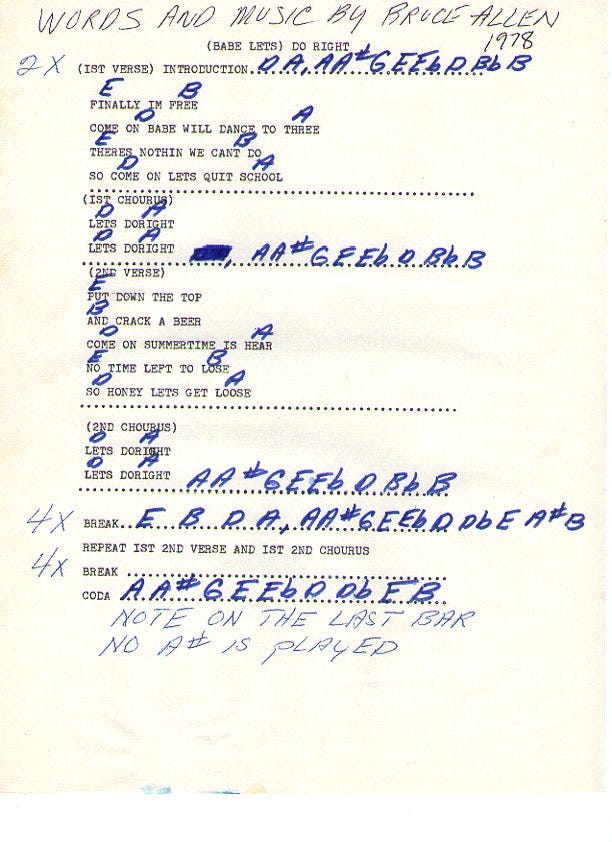 WORDS AND MUSIC BY BRUCE ALLEN
1978
(BABE LETS) DO RIGHT
2X (IST VERSE) INTRODUCTION..D A, A A# G E Eb D Bb B
E B
FINALLY IM FREE
D A
COME ON BABE WILL DANCE TO THREE
E B
THERES NOTHIN WE CANT DO
D A
SO COME ON LETS QUIT SCHOOL
(IST CHOURUS)
D A
LETS DORIGHT
D A
LETS DORIGHT , A A# G E Eb D Bb B
(2ND VERSE)
E
PUT DOWN THE TOP
B
AND CRACK A BEER
D A
COME ON SUMMERTIME IS HEAR
E B
NO TIME LEFT TO LOSE
D A
SO HONEY LETS GET LOOSE
(2ND CHOURUS)
D A
LETS DORIGHT
D A
LETS DORIGHT A A# G E Eb D Bb B
4X BREAK..E B D A, A A# G E Eb D Db E A# B
REPEAT IST 2ND VERSE AND IST 2ND CHOURUS
4X BREAK
CODA A A# G E Eb D Db E B
NOTE ON THE LAST BAR
NO A# IS PLAYED